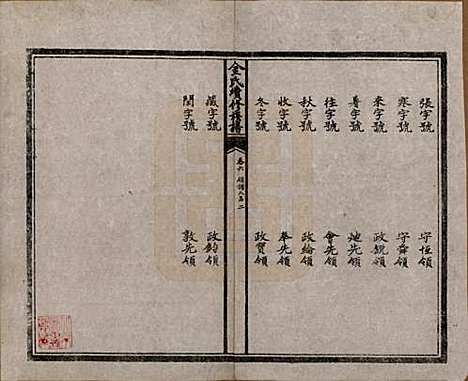 張字號 守恒領
寒字號 守舜領
來字號 政觀領
暑字號 灺先領
往字號 會先領
秋字號 政綸領
收字號 奉先領
冬字號 政賢領
金氏續修族譜
卷六 領譜人名 二
藏字號 政鈞領
閏字號 敦先領